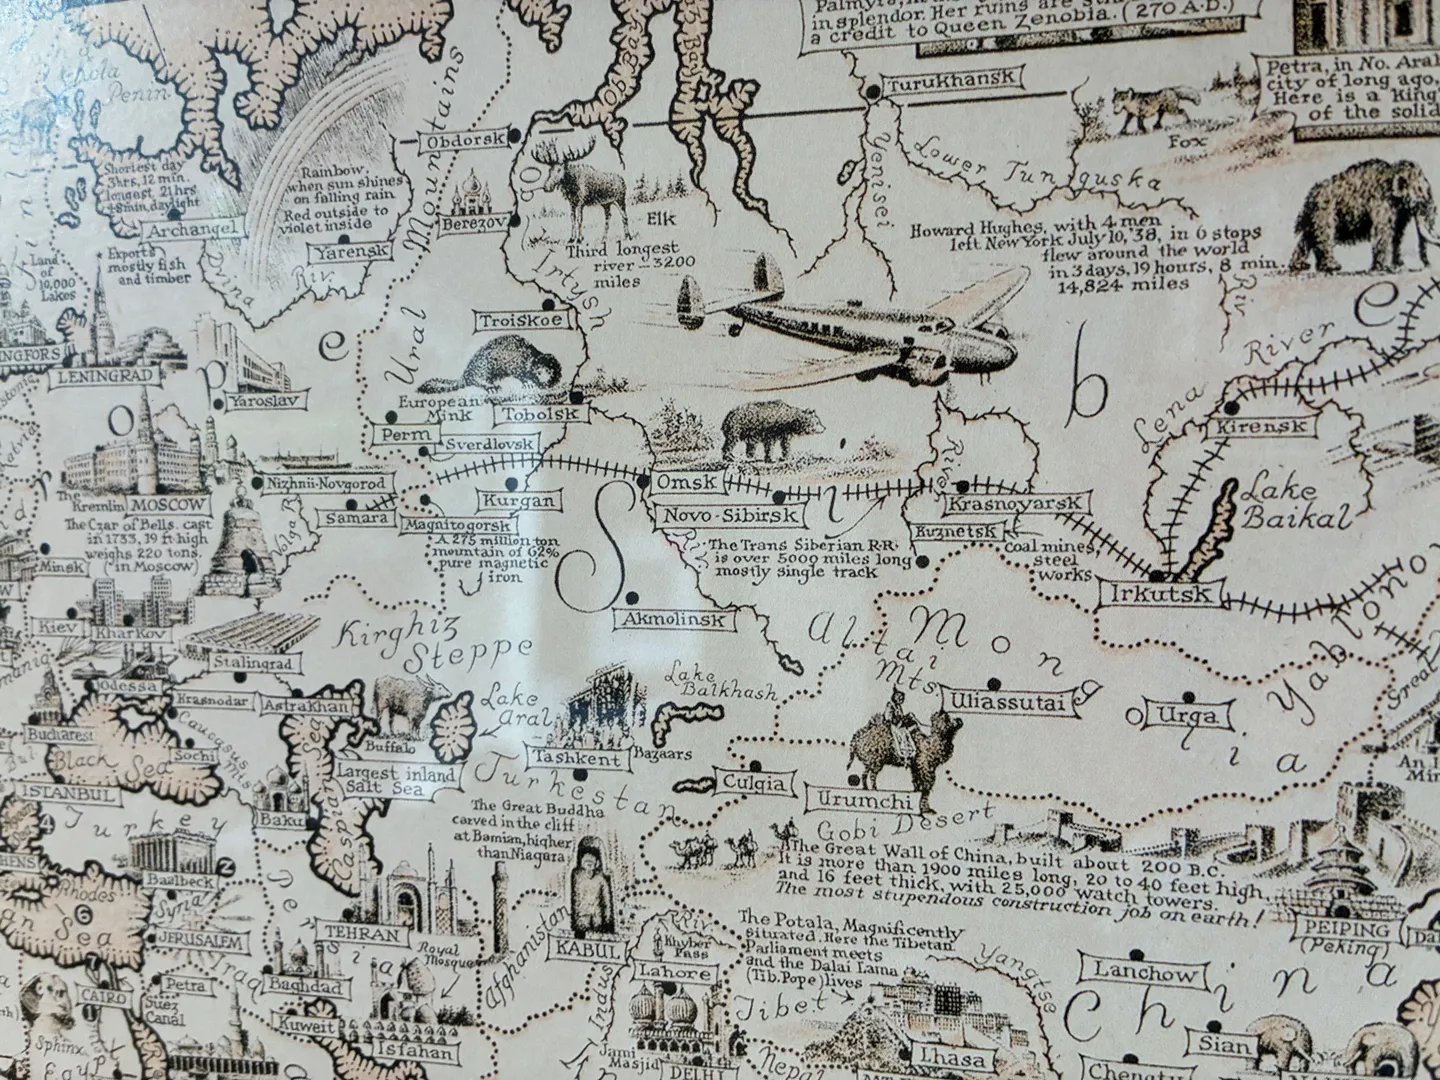 Palmyra, in
in splendor. Her ruins are
a credit to Queen Zenobia. (270 A.D.)
Petra, in No.
city of long ago,
Here is a King
of the solid
Turukhansk
Fox
Kola
Penin.
Shortest day
3hrs, 12 min.
longest 21 hrs
48 min. daylight
Archangel
Rainbow,
when sun shines
on falling rain
Red outside to
violet inside
Yarensk
Dvina Riv.
Exports
mostly fish
and timber
Land
of
10,000
Lakes
Ural Mountains
Obdorsk
Ob Bay
Ob
Berezov
Elk
Third longest
river – 3200
miles
Irtush
Yenisei
Lower Tunguska
Riv.
Howard Hughes, with 4 men
left New York July 10, '38, in 6 stops
flew around the world
in 3 days, 19 hours, 8 min.
14,824 miles
Troiskoe
European
Mink
Tobolsk
LENINGRAD
Yaroslav
Perm
Sverdlovsk
Nizhnii-Novgorod
The
Kremlin
MOSCOW
The Czar of Bells. cast
in 1733, 19 ft high
weighs 220 tons.
(in Moscow)
Volga R.
Samara
Kurgan
Magnitogorsk
A 275 million ton
mountain of 62%
pure magnetic
iron
Omsk
Novo-Sibirsk
The Trans Siberian R·R·
is over 5000 miles long
mostly single track
River
Krasnoyarsk
Kuznetsk
coal mines,
steel
works
Lena River
Kirensk
Lake
Baikal
Irkutsk
Yablono
Minsk
Kiev
Kharkov
Stalingrad
Kirghiz
Steppe
Akmolinsk
Altai
Mts.
Mongolia
Uliassutai
Urga
Odessa
Krasnodar
Astrakhan
Caucasus
Mts
Bucharest
Black Sea
Sochi
Buffalo
Lake
Aral
Largest inland
Salt Sea
Tashkent
Bazaars
Lake
Balkhash
Culgia
Urumchi
Gobi Desert
ISTANBUL
Turkey
Baku
Caspian Sea
Turkestan
The Great Buddha
carved in the cliff
at Bamian, higher
than Niagara
The Great Wall of China, built about 200 B.C.
It is more than 1900 miles long, 20 to 40 feet high,
and 16 feet thick, with 25,000 watch towers.
The most stupendous construction job on earth!
PEIPING
(Peking)
Baalbeck
Rhodes
6
Syria
JERUSALEM
Persia
TEHRAN
Royal
Mosque
Afghanistan
KABUL
Khyber
Pass
Lahore
The Potala, Magnificently
situated. Here the Tibetan
Parliament meets
and the Dalai Lama
(Tib. Pope) lives
Tibet
Yangtse
Lanchow
China
CAIRO
Petra
Suez
Canal
Iraq
Baghdad
Kuweit
Isfahan
Indus Riv.
Sphinx
Egypt
Jami
Masjid
DELHI
Nepal
Lhasa
Sian
Chengtu